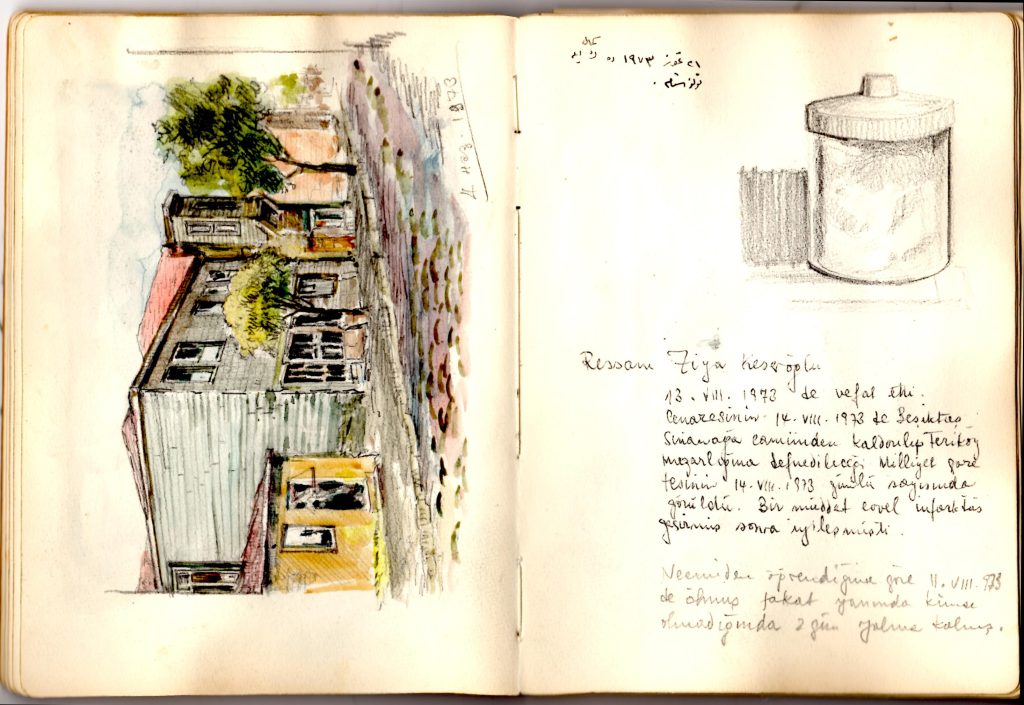 4 HAZ 1973
٢١ تموز ١٩٧٣ ده
Ressam Ziya Keseroğlu
13. VIII. 1973 de vefat etti.
Cenazesinin 14. VIII. 1973 de Beşiktaş
Sinanağa camiinden kaldırılıp Feriköy
mezarlığına defnedileceği Milliyet gaze
tesinin 14. VIII. 1973 günlü sayısında
görüldü. Bir müddet evvel infarktüs
geçirmiş sonra iyileşmişti.
Necmiden öğrendiğime göre 11. VIII. 973
de ölmüş fakat yanında kimse
olmadığından 2 gün yalnız kalmış.